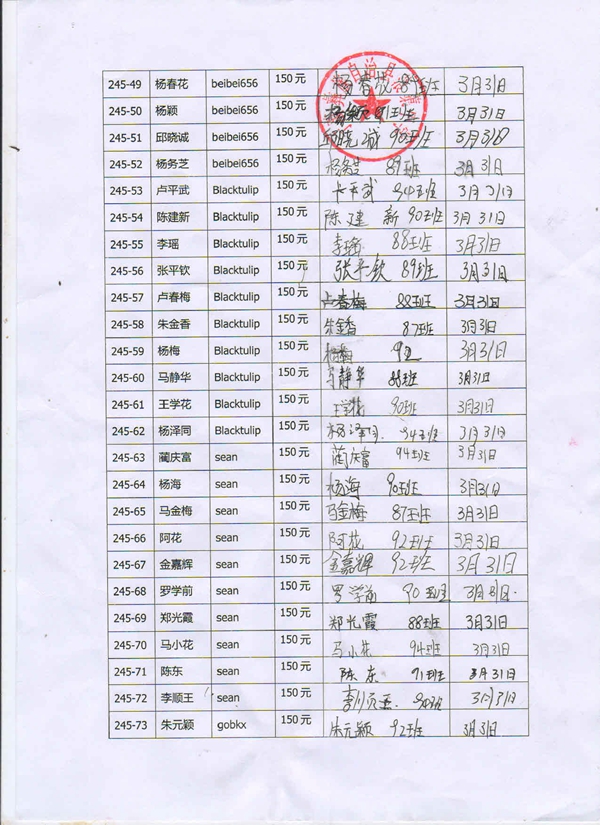 自治县
245-49 杨春花 beibei656 150元 杨春花 89班 3月31日
245-50 杨颖 beibei656 150元 杨颖 91班 3月31日
245-51 邱晓诚 beibei656 150元 邱晓诚 90班 3月31日
245-52 杨务芝 beibei656 150元 杨务芝 89班 3月31日
245-53 卢平武 Blacktulip 150元 卢平武 94班 3月31日
245-54 陈建新 Blacktulip 150元 陈建新 90班 3月31日
245-55 李瑶 Blacktulip 150元 李瑶 88班 3月31日
245-56 张平钦 Blacktulip 150元 张平钦 89班 3月31日
245-57 卢春梅 Blacktulip 150元 卢春梅 88班 3月31日
245-58 朱金香 Blacktulip 150元 朱金香 87班 3月31日
245-59 杨梅 Blacktulip 150元 杨梅 92 3月31日
245-60 马静华 Blacktulip 150元 马静华 88班 3月31日
245-61 王学花 Blacktulip 150元 王学花 90班 3月31日
245-62 杨泽同 Blacktulip 150元 杨泽同 94班 3月31日
245-63 蔺庆富 sean 150元 蔺庆富 94班 3月31日
245-64 杨海 sean 150元 杨海 90班 3月31日
245-65 马金梅 sean 150元 马金梅 87班 3月31日
245-66 阿花 sean 150元 阿花 92班 3月31日
245-67 金嘉辉 sean 150元 金嘉辉 92班 3月31日
245-68 罗学前 sean 150元 罗学前 90班 3月31日
245-69 郑光霞 sean 150元 郑光霞 88班 3月31日
245-70 马小花 sean 150元 马小花 94班 3月31日
245-71 陈东 sean 150元 陈东 91班 3月31日
245-72 李顺王 sean 150元 李顺王 90班 3月31日
245-73 朱元颖 gobkx 150元 朱元颖 92班 3月31日